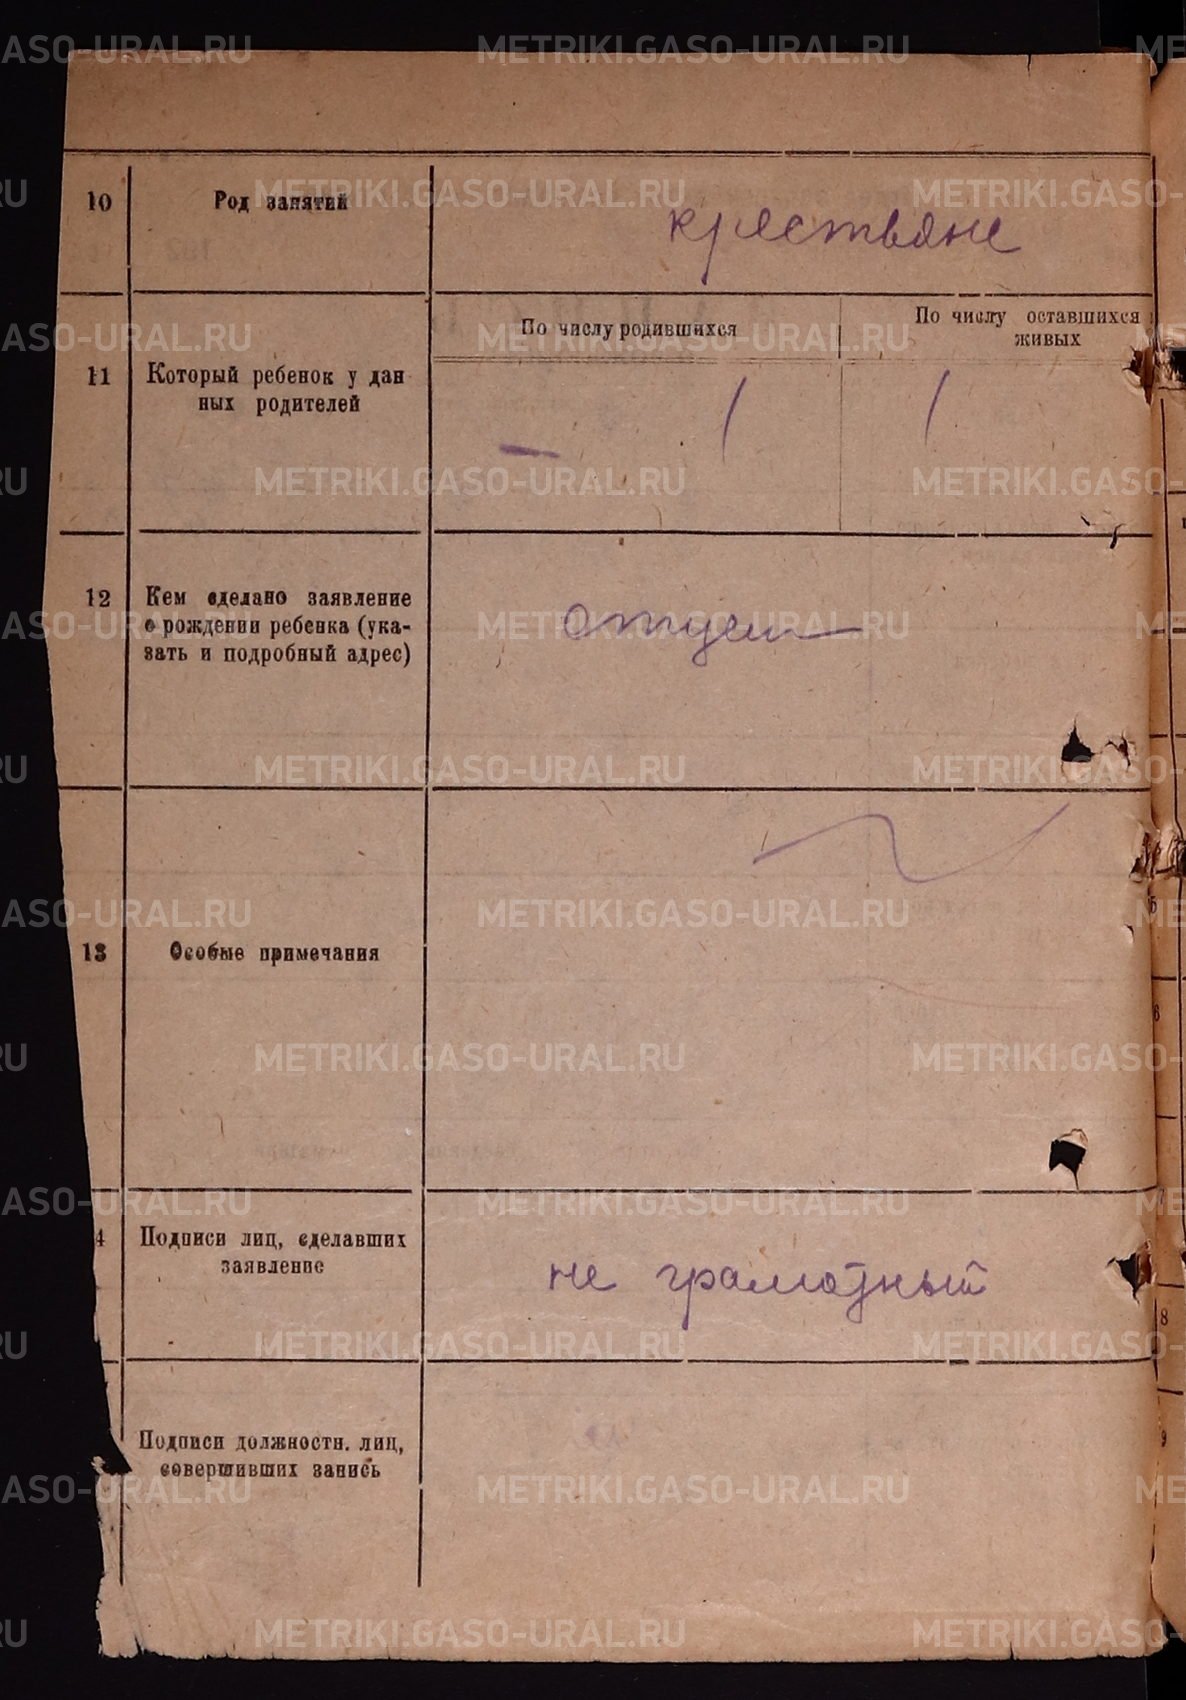 10
Род занятий
крестьяне
11
Который ребенок у дан
ных родителей
По числу родившихся
По числу оставшихся
живых
— 1
1
12
Кем сделано заявление
о рождении ребенка (ука-
зать и подробный адрес)
отцем
13
Особые примечания
4
Подписи лиц, сделавших
заявление
не грамотный
Подписи должностн. лиц,
совершивших запись
5
6
7
8
9
METRIKI.GASO-URAL.RU